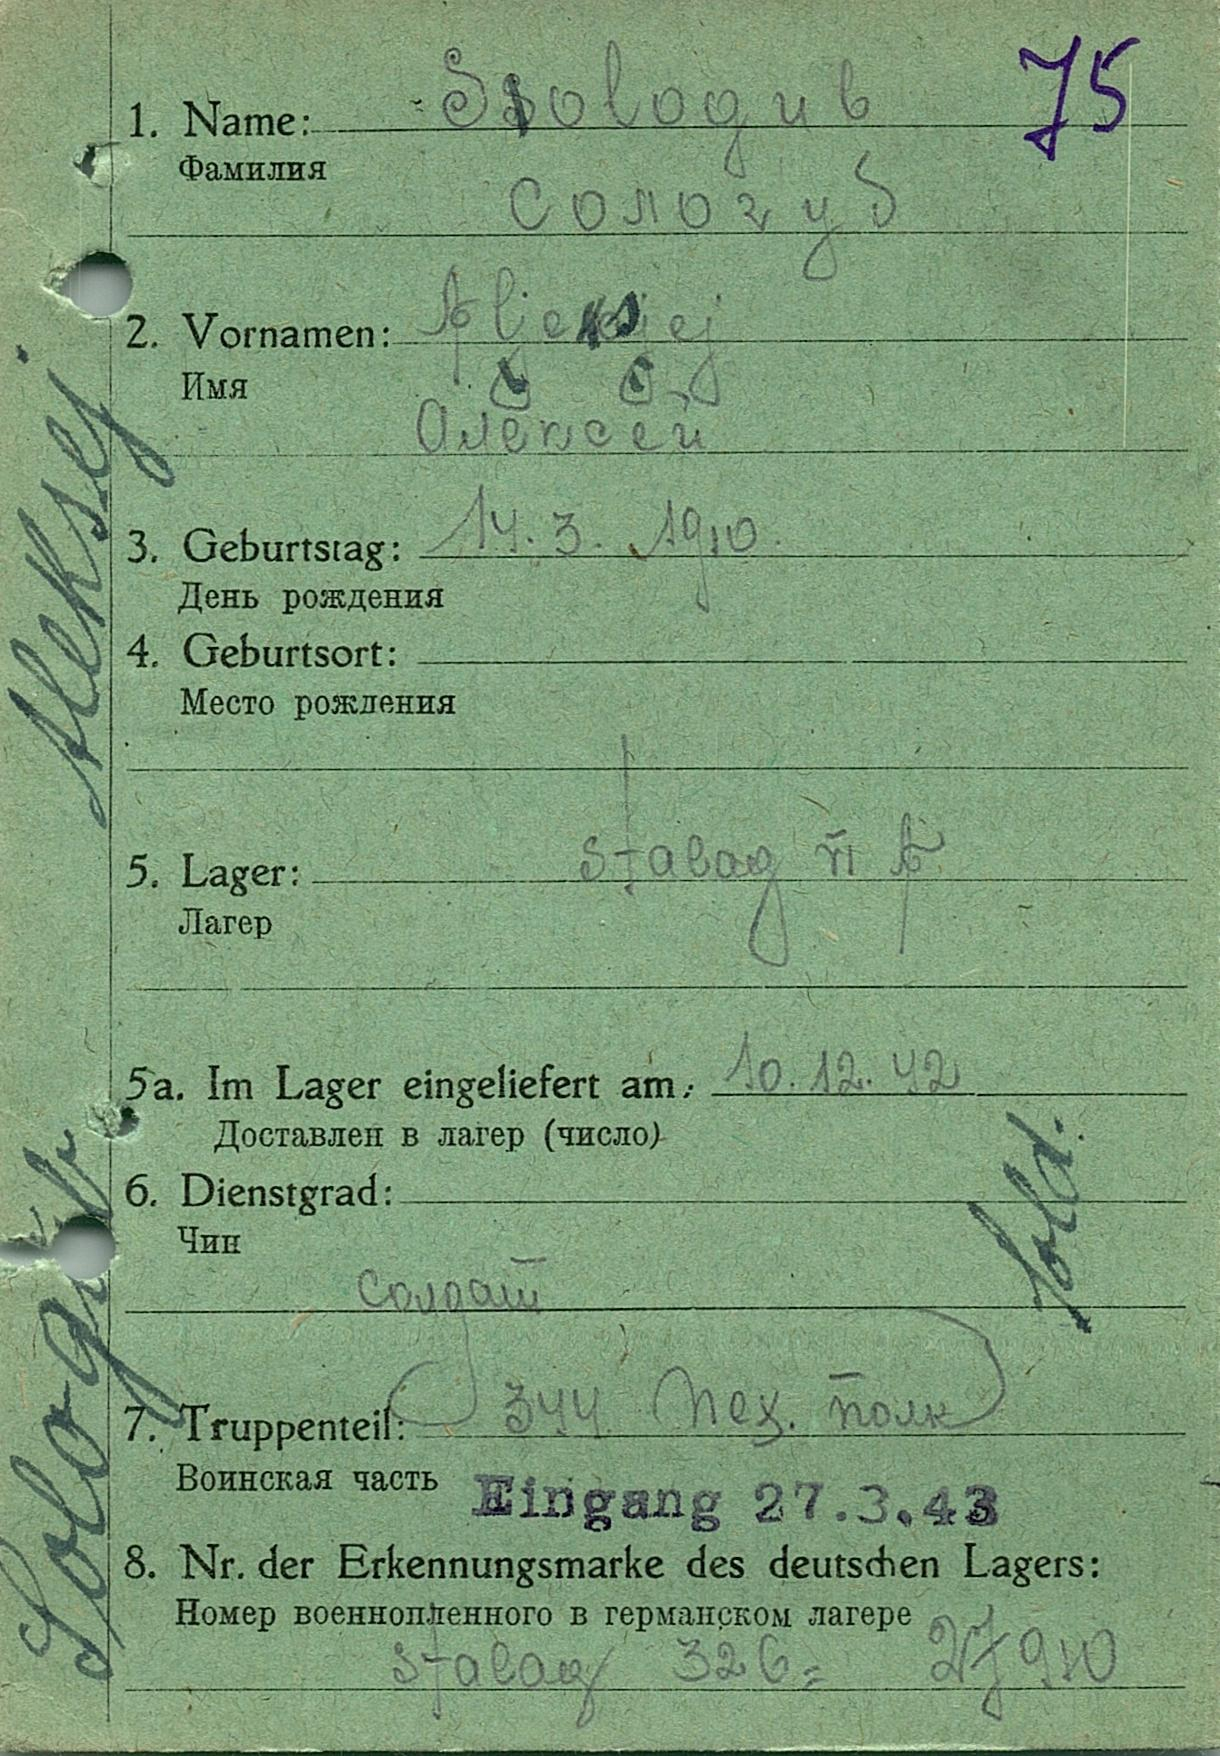 75
1. Name: Ssologub
Фамилия
Сологуб
2. Vornamen: Aljeksjej
Имя
Алексей
3. Geburtstag: 14. 3. 1910.
День рождения
4. Geburtsort:
Место рождения
5. Lager: Stalag VI A
Лагер
5a. Im Lager eingeliefert am: 10. 12. 42
Доставлен в лагер (число)
6. Dienstgrad:
Чин
солдат
Sold.
7. Truppenteil: 344 пех. полк
Воинская часть
Eingang 27.3.43
8. Nr. der Erkennungsmarke des deutschen Lagers:
Номер военнопленного в германском лагере
Stalag 326= 27910
Sologub Aleksej